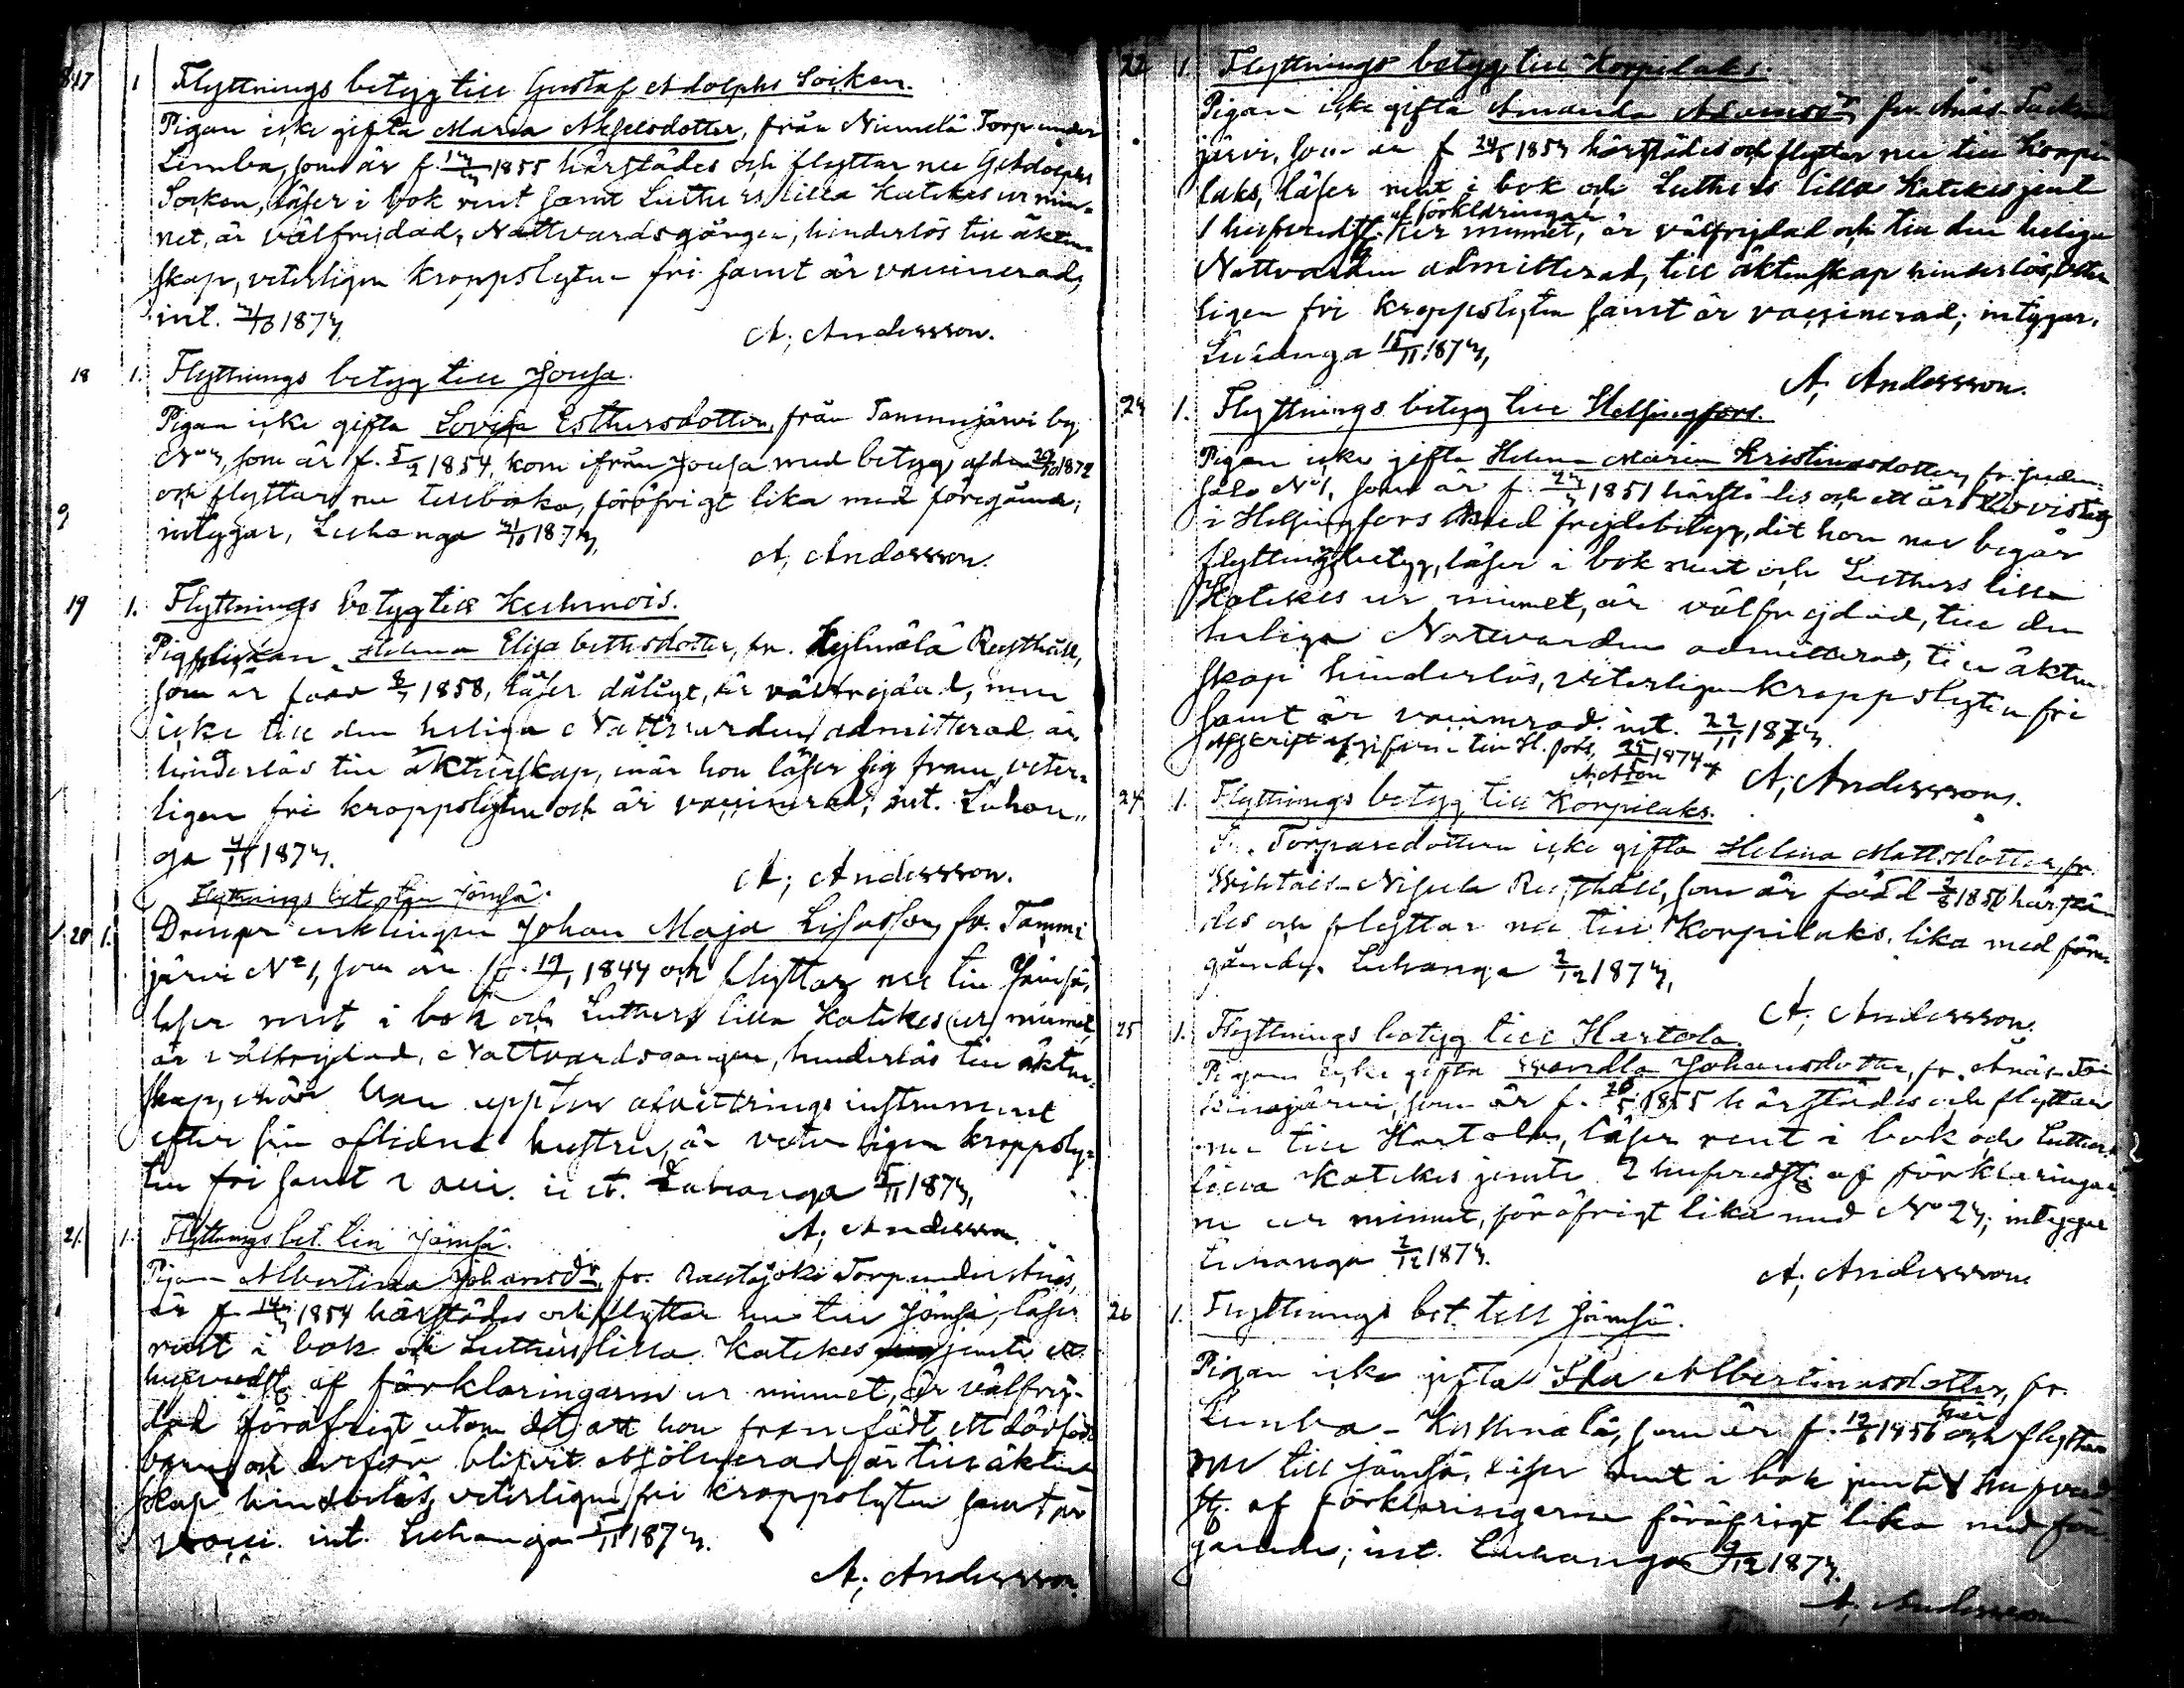 17 1 Flyttnings betyg till Gustaf Adolphs Socken.
Pigan icke gifta Maria Axelsdotter, från Niemelä Torp under
Lemba, som är f. 1855 härstädes och flyttar nu till G. Adolphs
Socken, läser i bok rent samt Luthers lilla Katekes ur min-
net, är välfrejdad, Nattvardsgången, hinderlös till äkten-
skap, veterligen kroppslyten fri samt är vaccinerad,
int. 1873.
A, Andersson.
18 1. Flyttnings betyg till Jousa.
Pigan icke gifta Lovisa Esthersdotter, från Tammijärvi by
som är f. 5/2 1854, kom ifrån Jousa med betyg af den 1872
och flyttar nu tillbaka, föröfrigt lika med föregående;
intygar, Luhanga 1873,
A, Andersson.
19 1. Flyttnings betyg till Kuhmois.
Pigflickan Helena Elisabethsdotter, fr. Kylmälä Rusthåll,
som är född 1858, läser dåligt, är välfrejdad, men
icke till den heliga Nattvarden admitterad är
hinderlös till äktenskap, när hon läser sig fram, veter-
ligen fri kroppslyten och är vaccinerad; int. Luhan-
ga 1873.
A; Andersson.
Flyttnings bet. till Jämsä.
20 1. Drengen enklingen Johan Maja Lisasson, fr. Tammi
järvi No 1, som är f. 19/1 1844 och flyttar nu till Jämsä,
läser rent i bok och Luthers lilla Katekes ur minnet,
är välfrejdad, Nattvardsgången, hinderlös till äkten-
skap, när han uppter afvittrings instrument
efter sin aflidna hustru, är veterligen kroppsly-
ten fri samt vacci. int. Luhanga 1873,
A, Andersson.
21. 1. Flyttnings bet. till Jämsä.
Pigan Albertina Johansdr, fr. Rautajoki Torp under Änäs,
är f. 1854 härstädes och flyttar nu till Jämsä, läser
rent i bok och Luthers lilla Katekes jemte ett
hufvudst. af förklaringarne ur minnet, är välfrej-
dad föröfrigt utom det att hon framfödt ett dödfödt
barn och derför blifvit absolverad, är till äkten
skap hinderlös, veterligen fri kroppslyten samt är
vacci. int. Luhanga 1873.
A; Andersson.
22 1. Flyttnings betyg till Korpilaks.
Pigan icke gifta Amanda Adamsdr, fr. Änäs
järvi, som är f 1853 härstädes och flyttar nu till Korpi
laks, läser rent i bok och Luthers lilla Katekes jemte
af förklaringar
1 hufvudst. ur minnet, är välfrejdad och till den heliga
Nattvarden admitterad, till äktenskap hinderlös, veter
ligen fri kroppslyten samt är vaccinerad; intygar.
Luhanga 15/11 1873,
A, Andersson.
23 1. Flyttnings betyg till Helsingfors.
Pigan icke gifta Helena Maria Kristinasdotter, fr.
No 1, som är f. 1851 härstädes och ett år vistats
i Helsingfors med frejdebetyg, dit hon nu begär
flyttningsbetyg, läser i bok rent och Luthers lilla
Katekes ur minnet, är välfrejdad, till den
heliga Nattvarden admitterad, till äkten
skap hinderlös, veterligen kroppslyten fri
samt är vaccinerad. int. 22/11 1873.
Afskrift af gifven till H.fors, 1874
A, Andersson.
24 1. Flyttnings betyg till Korpilaks.
Torparedottren icke gifta Helena Mattsdotter, fr.
Nisula Rusthåll, som är född 1856 härstä
des och flyttar nu till Korpilaks, lika med före-
gående. Luhanga 2/12 1873,
A; Andersson.
25 1. Flyttnings betyg till Hartola.
Pigan icke gifta Wendla Johansdotter, fr. Änäs
järvi, som är f. 1855 härstädes och flyttar
nu till Hartola, läser rent i bok och Luthers
lilla Katekes jemte 2 hufvudst. af förklaringar
ne ur minnet, föröfrigt lika med No 23; intygar
Luhanga 2/12 1873.
A; Andersson
26 1. Flyttnings bet. till Jämsä.
Pigan icke gifta Ida Albertinasdotter, fr.
här
Lemba-Kyllmälä, som är f. 1856 och flyttar
nu till Jämsä, läser rent i bok jemte hufvud
st. af förklaringarne föröfrigt lika med före
gående; int. Luhanga 9/12 1873.
A; Andersson